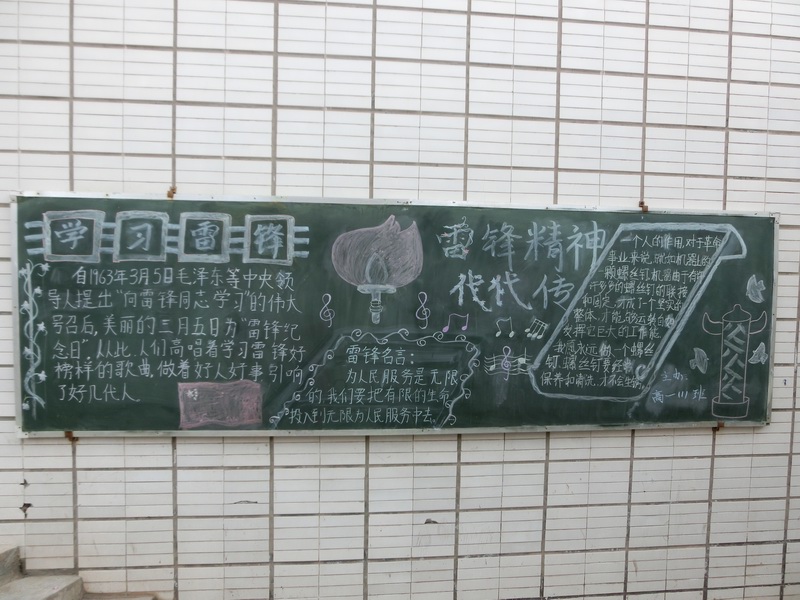 学习雷锋
自1963年3月5日毛泽东等中央领
导人提出“向雷锋同志学习”的伟大
号召后，美丽的三月五日为“雷锋纪
念日”，从此，人们高唱着学习雷锋好
榜样的歌曲，做着好人好事影响
了好几代人。
雷锋名言：
为人民服务是无限
的，我们要把有限的生命
投入到无限为人民服务中去
雷锋精神
代代传
一个人的作用，对于革命
事业来说，就如机器上的
一颗螺丝钉机器由于有
许多的螺丝钉的联接
和固定，才成了一个坚实的
整体，才能够运动自
发挥它巨大的工作能
我愿永远做一个螺丝
钉，螺丝钉要经常
保养和清洗，才不会生
主办：
高一111班